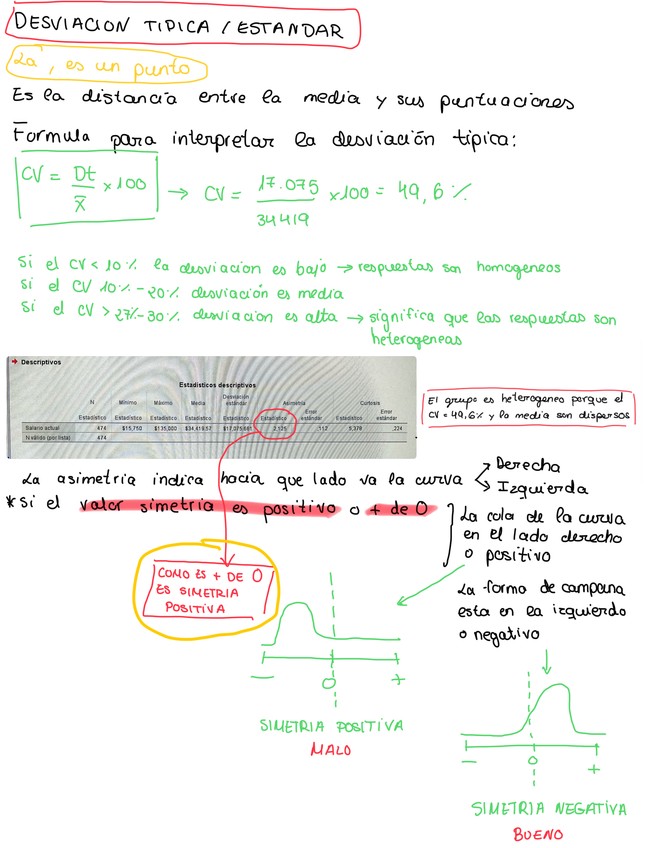 DESVIACION TIPICA / ESTANDAR
La , es un punto
Es la distancia entre la media y sus puntuaciones
Formula para interpretar la desviación típica:
CV = Dt / x̄ x 100 → CV = 17.075 / 34419 x 100 = 49,6 %
Si el CV < 10% la desviacion es bajo → respuestas son homogeneos
Si el CV 10% - 20% desviación es media
Si el CV > 27% - 30% desviacion es alta → significa que las respuestas son
heterogeneas
Descriptivos
Estadísticos descriptivos
N Mínimo Máximo Media Desviación estándar Asimetría Curtosis
Estadístico Estadístico Estadístico Estadístico Estadístico Estadístico Error estándar Estadístico Error estándar
Salario actual 474 $15,750 $135,000 $34,419.57 $17,075.661 2,125 ,112 5,378 ,224
N válido (por lista) 474
El grupo es heterogeneo porque el
CV = 49,6% y la media son dispersos
La asimetria indica hacia que lado va la curva
Derecha
Izquierda
*Si el valor simetria es positivo o + de 0
La cola de la curva
en el lado derecho
o positivo
COMO ES + DE 0
ES SIMETRIA
POSITIVA
La forma de campana
esta en la izquierdo
o negativo
— 0 +
SIMETRIA POSITIVA
MALO
— 0 +
SIMETRIA NEGATIVA
BUENO